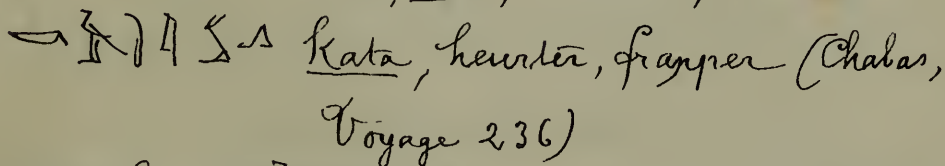 kata, heurter, frapper (Chabas,
Voyage 236)